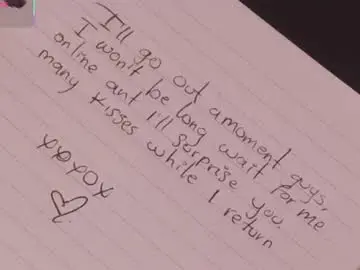 I'll go out a moment guys,
I won't be long wait for me
online ant I'll surprise you.
many kisses while I return
xxxox